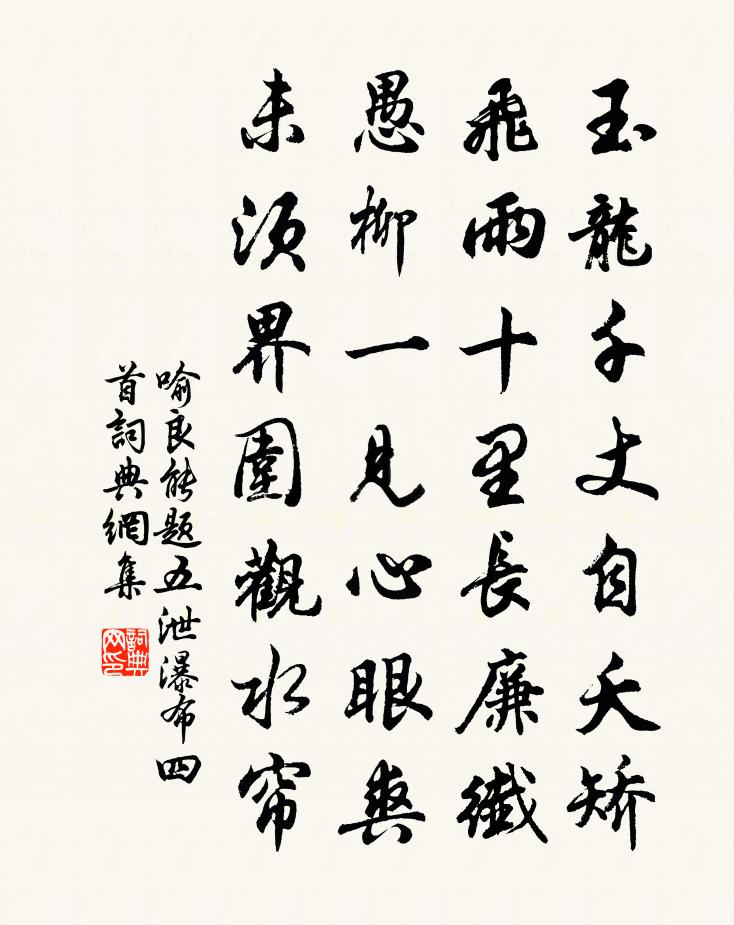 玉龍千丈自夭矯
飛雨十里長廉纖
愚柳一見心眼爽
未須界圍觀水帘
喻良能题五泄瀑布四
首詞典網集
詞典网印